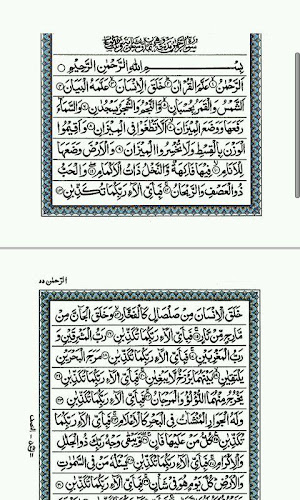 بِسْمِ اللهِ الرَّحْمٰنِ الرَّحِيْمِ
اَلرَّحْمٰنُ عَلَّمَ الْقُرْاٰنَ خَلَقَ الْاِنْسَانَ عَلَّمَهُ الْبَيَانَ
اَلشَّمْسُ وَالْقَمَرُ بِحُسْبَانٍ وَّالنَّجْمُ وَالشَّجَرُ يَسْجُدٰنِ وَالسَّمَآءَ
رَفَعَهَا وَوَضَعَ الْمِيْزَانَ اَلَّا تَطْغَوْا فِي الْمِيْزَانِ وَاَقِيْمُوا
الْوَزْنَ بِالْقِسْطِ وَلَا تُخْسِرُوا الْمِيْزَانَ وَالْاَرْضَ وَضَعَهَا
لِلْاَنَامِ فِيْهَا فَاكِهَةٌ وَّالنَّخْلُ ذَاتُ الْاَكْمَامِ وَالْحَبُّ
ذُو الْعَصْفِ وَالرَّيْحَانُ فَبِاَيِّ اٰلَآءِ رَبِّكُمَا تُكَذِّبٰنِ
الرَّحْمٰن ٥٥
خَلَقَ الْاِنْسَانَ مِنْ صَلْصَالٍ كَالْفَخَّارِ وَخَلَقَ الْجَآنَّ مِنْ
مَّارِجٍ مِّنْ نَّارٍ فَبِاَيِّ اٰلَآءِ رَبِّكُمَا تُكَذِّبٰنِ رَبُّ الْمَشْرِقَيْنِ وَ
رَبُّ الْمَغْرِبَيْنِ فَبِاَيِّ اٰلَآءِ رَبِّكُمَا تُكَذِّبٰنِ مَرَجَ الْبَحْرَيْنِ
يَلْتَقِيٰنِ بَيْنَهُمَا بَرْزَخٌ لَّا يَبْغِيٰنِ فَبِاَيِّ اٰلَآءِ رَبِّكُمَا تُكَذِّبٰنِ
يَخْرُجُ مِنْهُمَا اللُّؤْلُؤُ وَالْمَرْجَانُ فَبِاَيِّ اٰلَآءِ رَبِّكُمَا تُكَذِّبٰنِ
وَلَهُ الْجَوَارِ الْمُنْشَاٰتُ فِي الْبَحْرِ كَالْاَعْلَامِ فَبِاَيِّ اٰلَآءِ رَبِّكُمَا
تُكَذِّبٰنِ كُلُّ مَنْ عَلَيْهَا فَانٍ وَّيَبْقٰى وَجْهُ رَبِّكَ ذُو الْجَلٰلِ
وَالْاِكْرَامِ فَبِاَيِّ اٰلَآءِ رَبِّكُمَا تُكَذِّبٰنِ يَسْـَٔلُهٗ مَنْ فِي السَّمٰوٰتِ
وَالْاَرْضِ كُلَّ يَوْمٍ هُوَ فِيْ شَاْنٍ فَبِاَيِّ اٰلَآءِ رَبِّكُمَا تُكَذِّبٰنِ